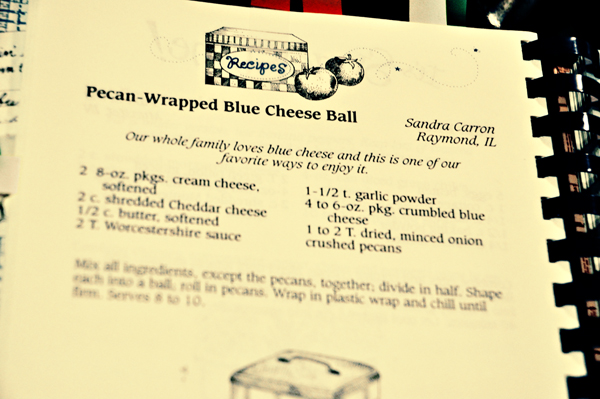 Recipes
Pecan-Wrapped Blue Cheese Ball
Sandra Carron
Raymond, IL
Our whole family loves blue cheese and this is one of our
favorite ways to enjoy it.
2 8-oz. pkgs. cream cheese,
softened
2 c. shredded Cheddar cheese
1/2 c. butter, softened
2 T. Worcestershire sauce
1-1/2 t. garlic powder
4 to 6-oz. pkg. crumbled blue
cheese
1 to 2 T. dried, minced onion
crushed pecans
Mix all ingredients, except the pecans, together; divide in half. Shape
each into a ball; roll in pecans. Wrap in plastic wrap and chill until
firm. Serves 8 to 10.